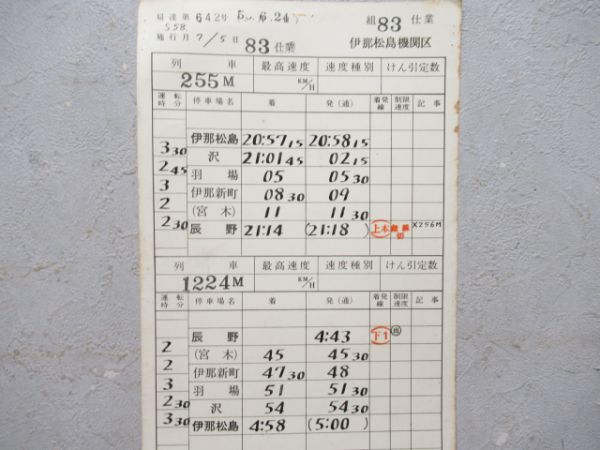 局達第 642号
S58.
施行月 7/5日 83仕業
組 83 仕業
伊那松島機関区
列 車 最高速度 速度種別 けん引定数
255M KM/H
運転時分 停車場名 着 発(通) 着発線 制限速度 記事
伊那松島 20:57 15 20:58 15
3 30 沢 21:01 45 02 15
2 45 羽場 05 05 30
3 伊那新町 08 30 09
2 (宮木) 11 11 30
2 30 辰野 21:14 (21:18) 上本 X256M
列 車 最高速度 速度種別 けん引定数
1224M KM/H
運転時分 停車場名 着 発(通) 着発線 制限速度 記事
辰野 4:43 下1
2 (宮木) 45 45 30
2 伊那新町 47 30 48
3 羽場 51 51 30
2 30 沢 54 54 30
3 30 伊那松島 4:58 (5:00)